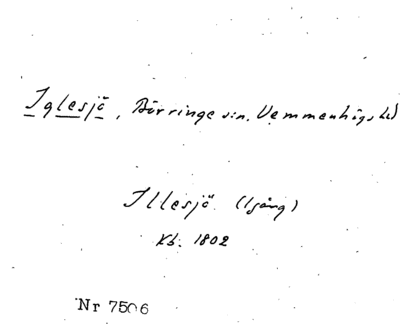 Iglesjö, Börringe sn, Vemmenhögs hd
Illesjö (1 gång)
Kb. 1802
Nr 7506